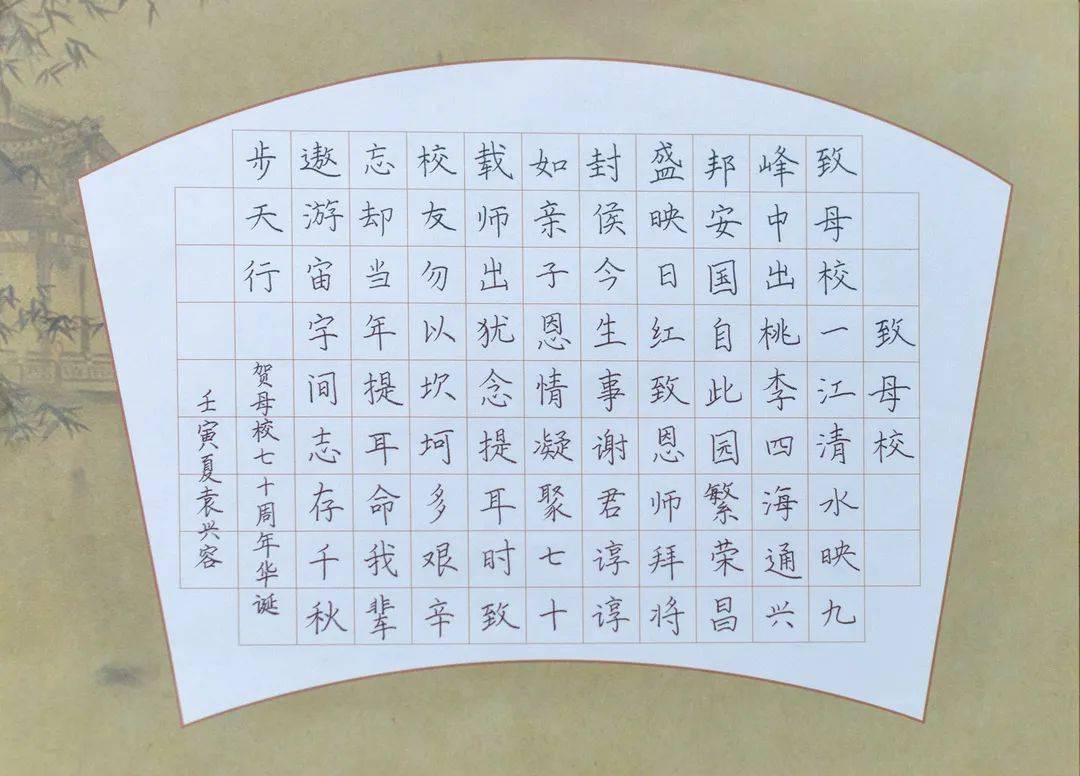 致母校
致母校一江清水映九
峰中出桃李四海通兴
邦安国自此园繁荣昌
盛映日红致恩师拜将
封侯今生事谢君谆谆
如亲子恩情凝聚七十
载师出犹念提耳时致
校友勿以坎坷多艰辛
忘却当年提耳命我辈
遨游宙字间志存千秋
步天行
贺母校七十周年华诞
壬寅夏袁兴容